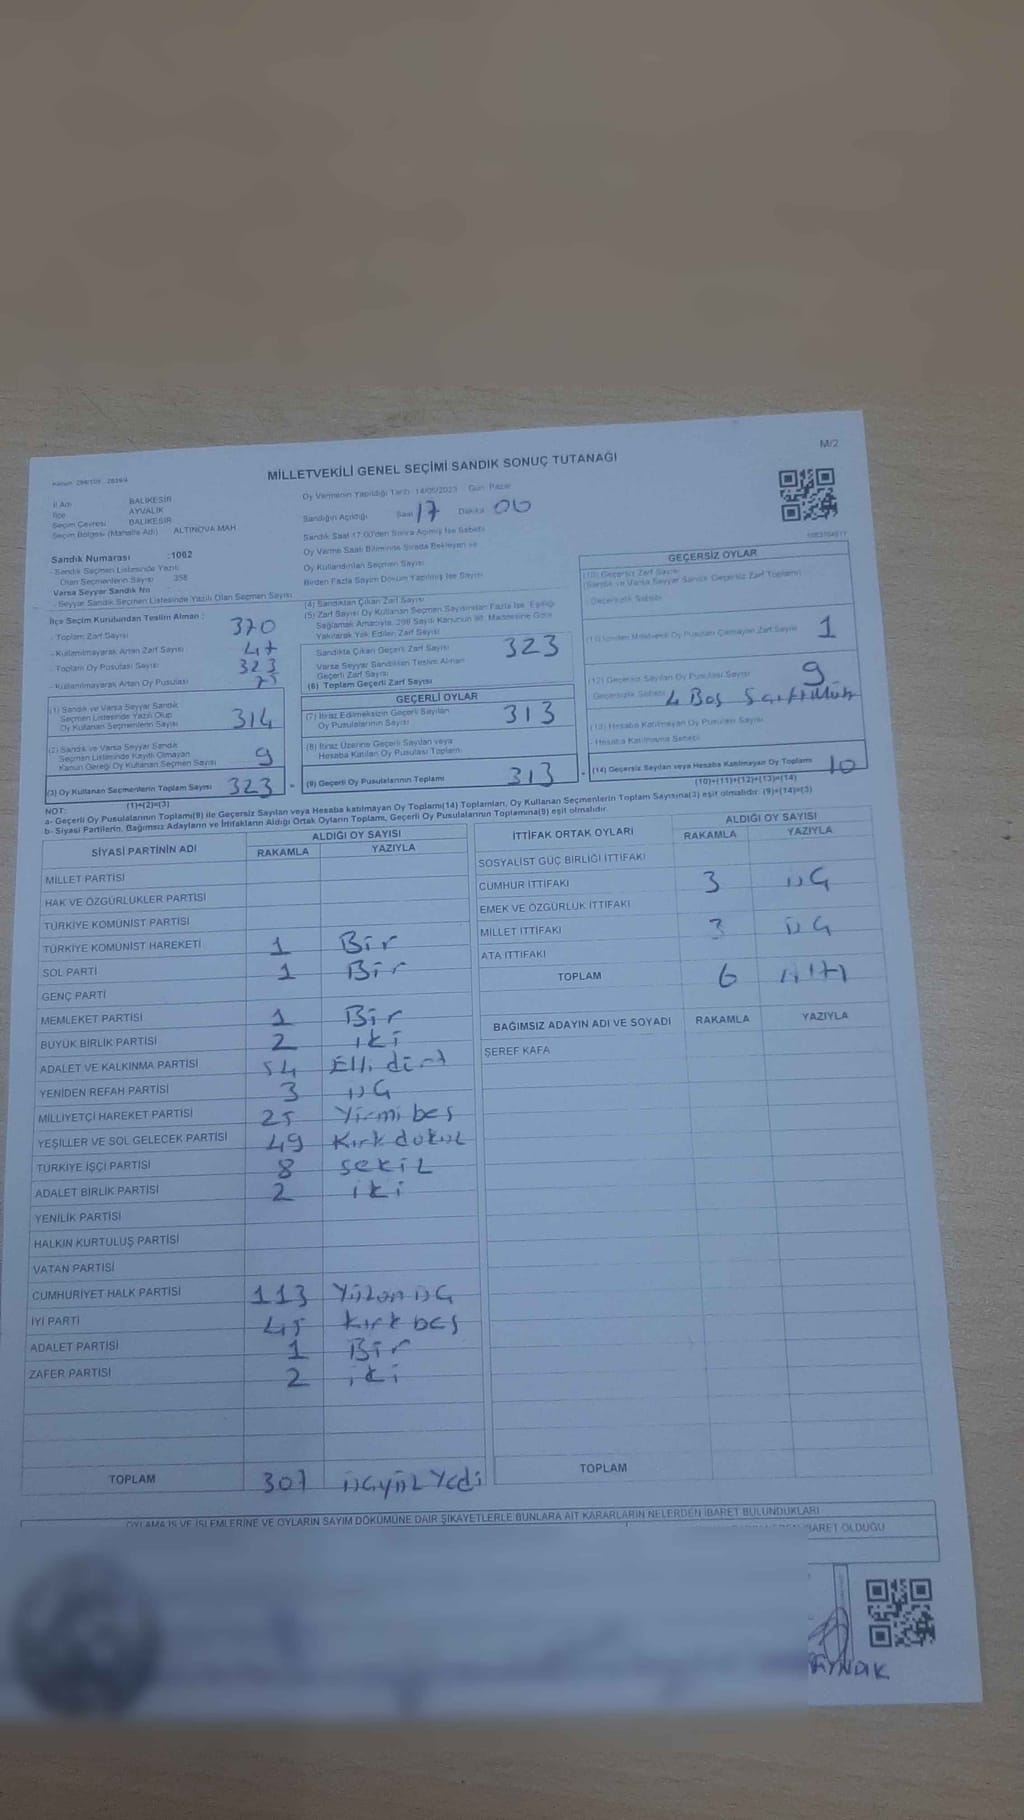 M/2
MİLLETVEKİLİ GENEL SEÇİMİ SANDIK SONUÇ TUTANAĞI
İl Adı BALIKESİR
İlçe AYVALIK
Seçim Çevresi BALIKESİR
Seçim Bölgesi (Mahalle Adı) ALTINOVA MAH
Oy Vermenin Yapıldığı Tarih 14/05/2023 Gün Pazar
Sandığın Açıldığı Saat 17 Dakika 00
Sandık Saat 17:00'den Sonra Açılmış İse Sebebi
Oy Verme Saati Bitiminde Sırada Bekleyen ve
Oy Kullandırılan Seçmen Sayısı
Birden Fazla Sayım Döküm Yapılmış İse Sayısı
Sandık Numarası :1002
- Sandık Seçmen Listesinde Yazılı
Olan Seçmenlerin Sayısı 358
Varsa Seyyar Sandık No
- Seyyar Sandık Seçmen Listesinde Yazılı Olan Seçmen Sayısı
İlçe Seçim Kurulundan Teslim Alınan :
- Toplam Zarf Sayısı 370
- Kullanılmayarak Artan Zarf Sayısı 47
- Toplam Oy Pusulası Sayısı 323
- Kullanılmayarak Artan Oy Pusulası
(1) Sandık ve Varsa Seyyar Sandık
Seçmen Listesinde Yazılı Olup
Oy Kullanan Seçmenlerin Sayısı 314
(2) Sandık ve Varsa Seyyar Sandık
Seçmen Listesinde Kayıtlı Olmayan
Kanun Gereği Oy Kullanan Seçmen Sayısı 9
(3) Oy Kullanan Seçmenlerin Toplam Sayısı 323
(1)+(2)=(3)
(4) Sandıktan Çıkan Zarf Sayısı
(5) Zarf Sayısı Oy Kullanan Seçmen Sayısından Fazla İse, Eşitliği
Sağlamak Amacıyla, 298 Sayılı Kanunun 98. Maddesine Göre
Yakılarak Yok Edilen Zarf Sayısı
Sandıkta Çıkan Geçerli Zarf Sayısı 323
Varsa Seyyar Sandıktan Teslim Alınan
Geçerli Zarf Sayısı
(6) Toplam Geçerli Zarf Sayısı
GEÇERLİ OYLAR
(7) İtiraz Edilmeksizin Geçerli Sayılan
Oy Pusulalarının Sayısı 313
(8) İtiraz Üzerine Geçerli Sayılan veya
Hesaba Katılan Oy Pusulası Toplamı
(9) Geçerli Oy Pusulalarının Toplamı 313
GEÇERSİZ OYLAR
(10) Geçersiz Zarf Sayısı
(Sandık ve Varsa Seyyar Sandık Geçersiz Zarf Toplamı)
- Geçersizlik Sebebi
(11) İçinden Milletvekili Oy Pusulası Çıkmayan Zarf Sayısı 1
(12) Geçersiz Sayılan Oy Pusulası Sayısı 9
Geçersizlik Sebebi 4 Boş
(13) Hesaba Katılmayan Oy Pusulası Sayısı
- Hesaba Katılmama Sebebi
(14) Geçersiz Sayılan veya Hesaba Katılmayan Oy Toplamı 10
(10)+(11)+(12)+(13)=(14)
NOT:
a- Geçerli Oy Pusulalarının Toplamı(9) ile Geçersiz Sayılan veya Hesaba katılmayan Oy Toplamı(14) Toplamları, Oy Kullanan Seçmenlerin Toplam Sayısına(3) eşit olmalıdır. (9)+(14)=(3)
b- Siyasi Partilerin, Bağımsız Adayların ve İttifakların Aldığı Ortak Oyların Toplamı, Geçerli Oy Pusulalarının Toplamına(9) eşit olmalıdır.
SİYASİ PARTİNİN ADI ALDIĞI OY SAYISI
RAKAMLA YAZIYLA
MİLLET PARTİSİ
HAK VE ÖZGÜRLÜKLER PARTİSİ
TÜRKİYE KOMÜNİST PARTİSİ
TÜRKİYE KOMÜNİST HAREKETİ 1 Bir
SOL PARTİ 1 Bir
GENÇ PARTİ
MEMLEKET PARTİSİ 1 Bir
BÜYÜK BİRLİK PARTİSİ 2 iki
ADALET VE KALKINMA PARTİSİ 54 Elli dört
YENİDEN REFAH PARTİSİ 3 üç
MİLLİYETÇİ HAREKET PARTİSİ 25 Yirmi beş
YEŞİLLER VE SOL GELECEK PARTİSİ 49 Kırk dokuz
TÜRKİYE İŞÇİ PARTİSİ 8 sekiz
ADALET BİRLİK PARTİSİ 2 iki
YENİLİK PARTİSİ
HALKIN KURTULUŞ PARTİSİ
VATAN PARTİSİ
CUMHURİYET HALK PARTİSİ 113 Yüzon üç
İYİ PARTİ 45 kırk beş
ADALET PARTİSİ 1 Bir
ZAFER PARTİSİ 2 iki
TOPLAM 307 üçyüz Yedi
İTTİFAK ORTAK OYLARI ALDIĞI OY SAYISI
RAKAMLA YAZIYLA
SOSYALİST GÜÇ BİRLİĞİ İTTİFAKI
CUMHUR İTTİFAKI 3 üç
EMEK VE ÖZGÜRLÜK İTTİFAKI
MİLLET İTTİFAKI 3 üç
ATA İTTİFAKI
TOPLAM 6 altı
BAĞIMSIZ ADAYIN ADI VE SOYADI RAKAMLA YAZIYLA
ŞEREF KAFA
TOPLAM
OYLAMA İŞ VE İŞLEMLERİNE VE OYLARIN SAYIM DÖKÜMÜNE DAİR ŞİKAYETLERLE BUNLARA AİT KARARLARIN NELERDEN İBARET BULUNDUKLARI
İBARET OLDUĞU